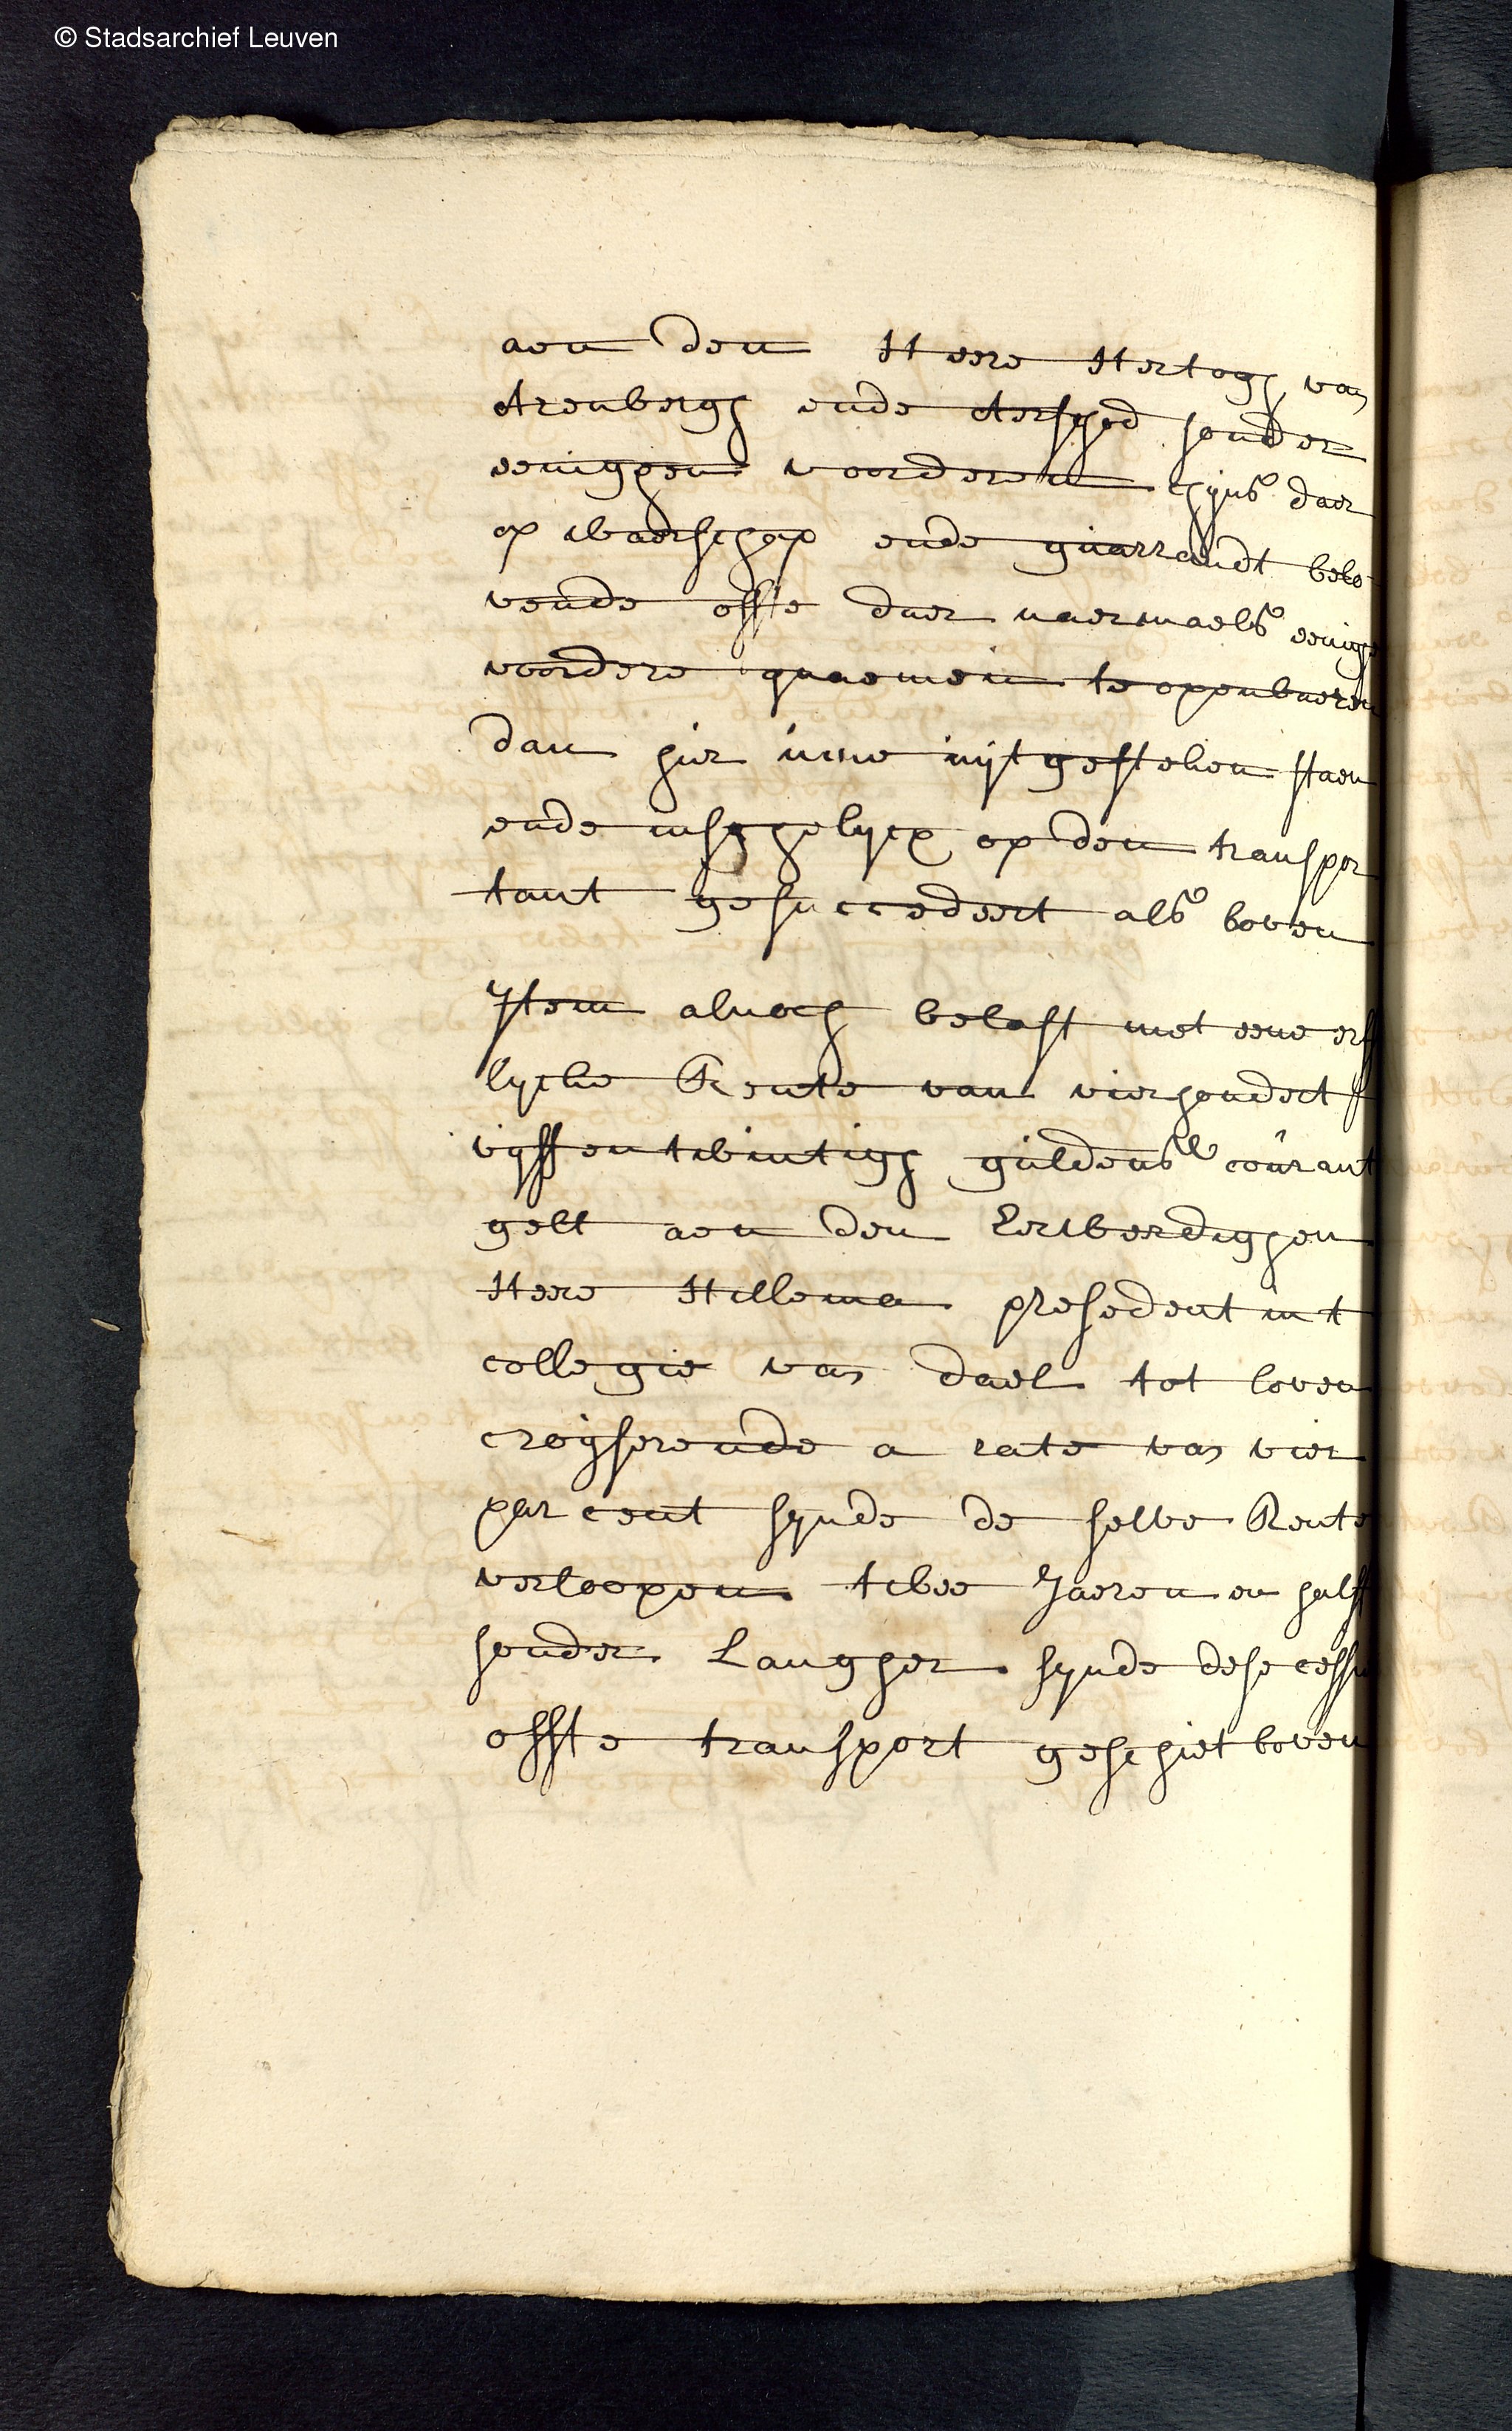 © Stadsarchief Leuven
aen den Heere Hertogh van
Arenbergh ende Aerschod sonder
eenighen voorderen chijns daer
op waerschap ende guarrandt belo-
vende offte daer naermaels eenige
voordere quaemen te openbaeren
dan hier inne uijtgesteken staen
ende insghelycx op den transpor
tant gesuccedeert als boven
Jtem alnoch belast met eene erf
lycke Rente van vierhondert
vyffentwintigh guldens courant
gelt aen den Eerwerdighen
Heere Hillema presedent int
collegie van dael tot loven
croyserende a rate van vier
par cent synde de selve Rente
verloopen twee Jaeren en half
sonder Langher synde dese cessie
offte transport geschiet boven